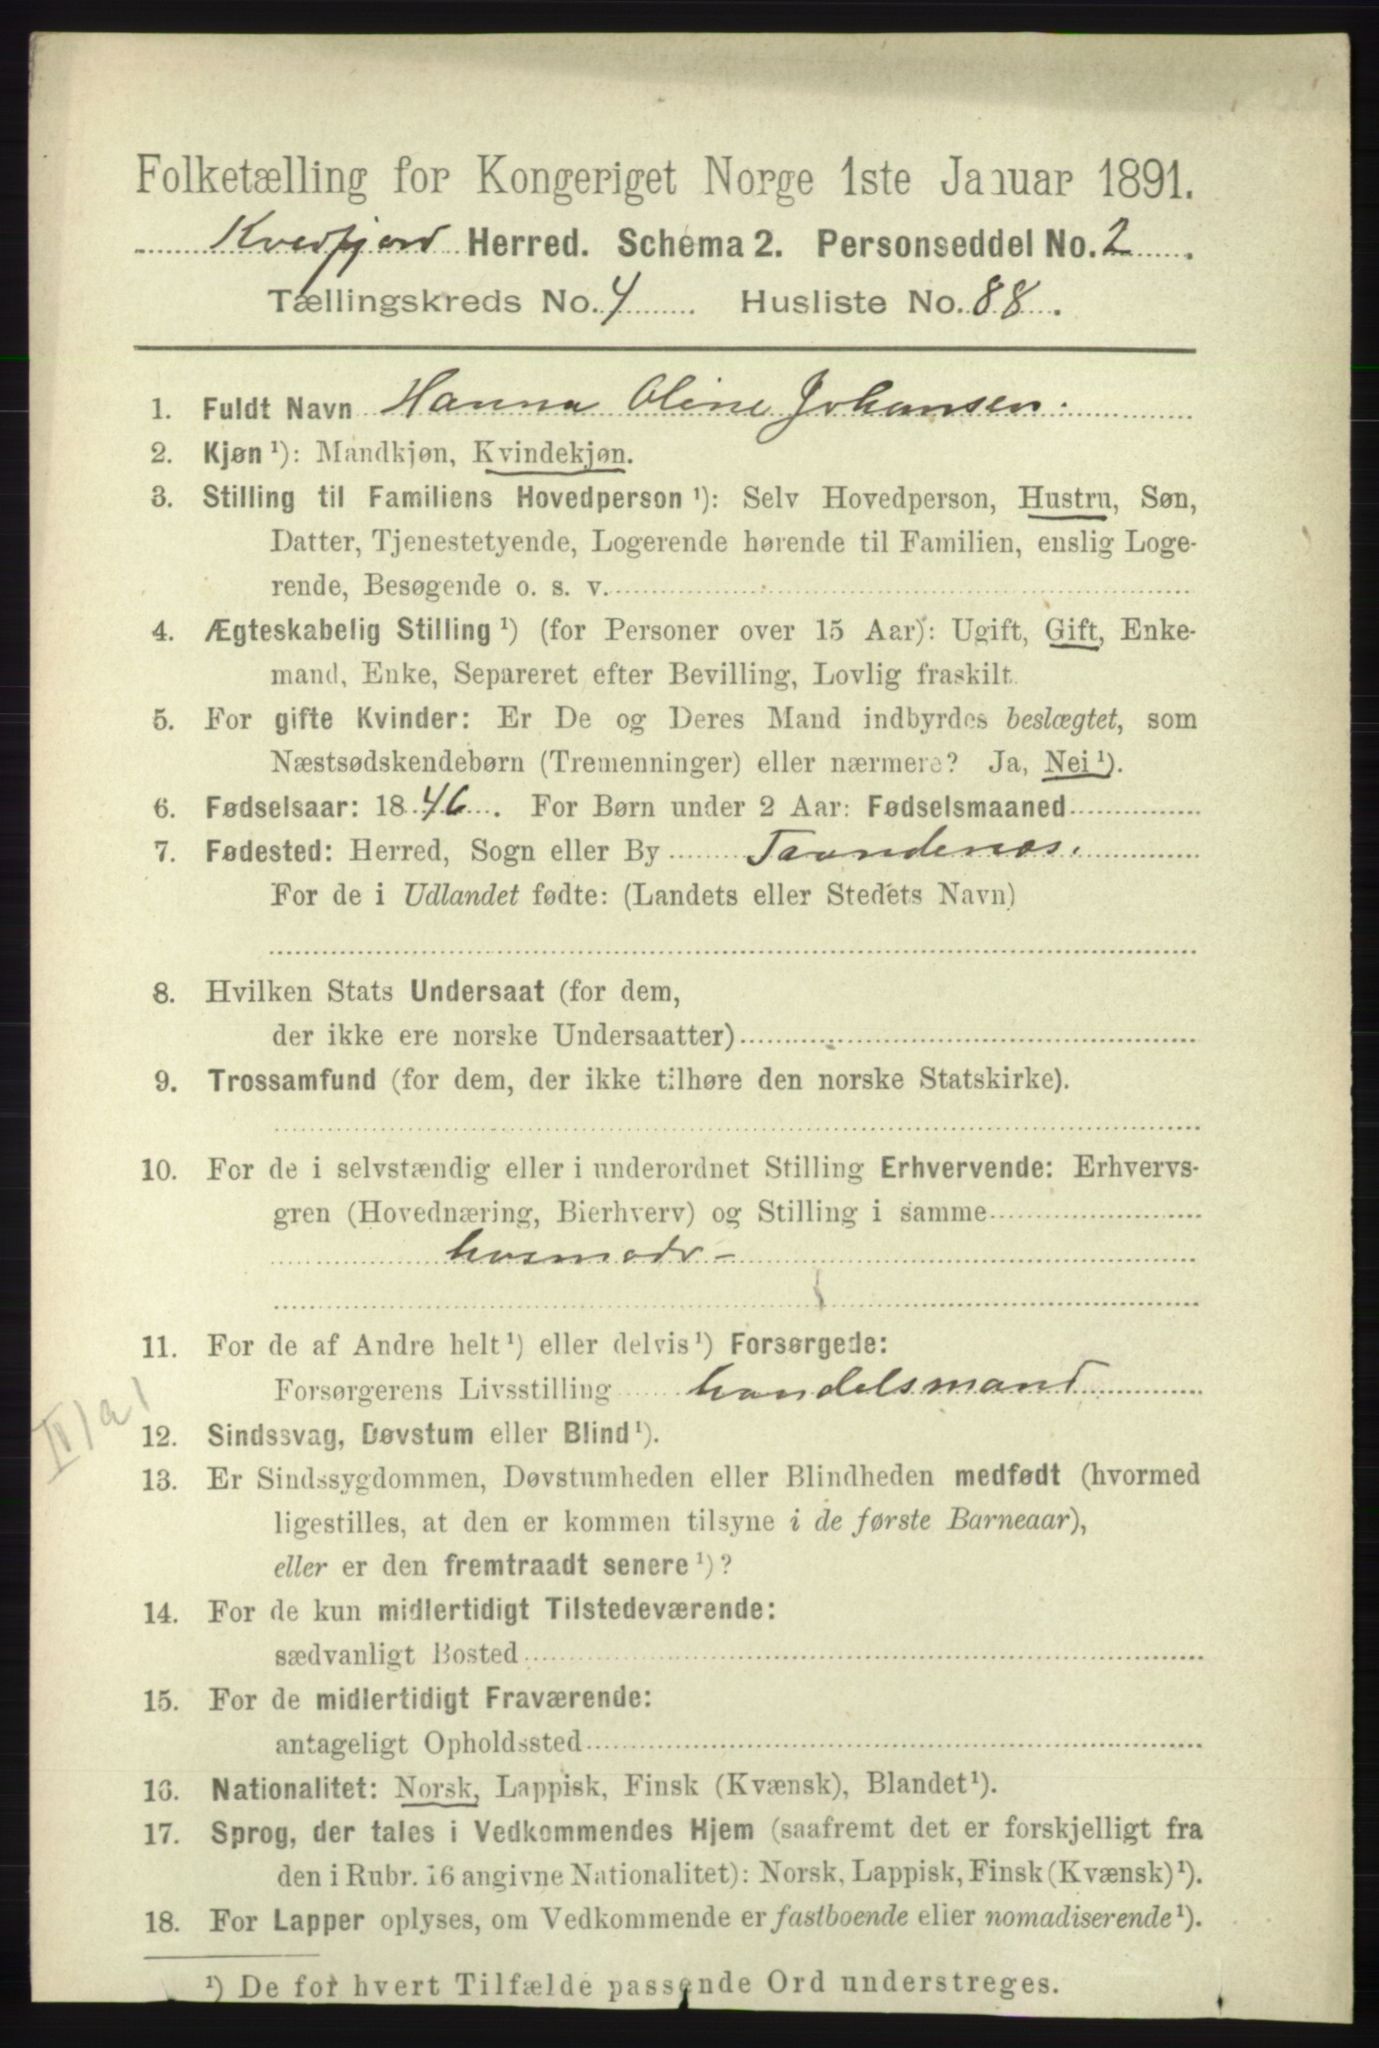 Folketælling for Kongeriget Norge 1ste Januar 1891.
Kvedfjord Herred. Schema 2. Personseddel No. 2.
Tællingskreds No. 4 Husliste No. 88.
1. Fuldt Navn Hanna Oline Johansen.
2. Kjøn ¹): Mandkjøn, Kvindekjøn.
3. Stilling til Familiens Hovedperson ¹): Selv Hovedperson, Hustru, Søn,
Datter, Tjenestetyende, Logerende hørende til Familien, enslig Loge-
rende, Besøgende o. s. v.
4. Ægteskabelig Stilling ¹) (for Personer over 15 Aar): Ugift, Gift, Enke-
mand, Enke, Separeret efter Bevilling, Lovlig fraskilt.
5. For gifte Kvinder: Er De og Deres Mand indbyrdes beslægtet, som
Næstsødskendebørn (Tremenninger) eller nærmere? Ja, Nei ¹).
6. Fødselsaar: 1846. For Børn under 2 Aar: Fødselsmaaned
7. Fødested: Herred, Sogn eller By Trondenæs.
For de i Udlandet fødte: (Landets eller Stedets Navn)
8. Hvilken Stats Undersaat (for dem,
der ikke ere norske Undersaatter)
9. Trossamfund (for dem, der ikke tilhøre den norske Statskirke).
10. For de i selvstændig eller i underordnet Stilling Erhvervende: Erhvervs-
gren (Hovednæring, Bierhverv) og Stilling i samme
husmodr -
11. For de af Andre helt ¹) eller delvis ¹) Forsørgede:
Forsørgerens Livsstilling handelsmand
IV/a 1
12. Sindssvag, Døvstum eller Blind ¹).
13. Er Sindssygdommen, Døvstumheden eller Blindheden medfødt (hvormed
ligestilles, at den er kommen tilsyne i de første Barneaar),
eller er den fremtraadt senere ¹)?
14. For de kun midlertidigt Tilstedeværende:
sædvanligt Bosted
15. For de midlertidigt Fraværende:
antageligt Opholdssted
16. Nationalitet: Norsk, Lappisk, Finsk (Kvænsk), Blandet ¹).
17. Sprog, der tales i Vedkommendes Hjem (saafremt det er forskjelligt fra
den i Rubr. 16 angivne Nationalitet): Norsk, Lappisk, Finsk (Kvænsk) ¹).
18. For Lapper oplyses, om Vedkommende er fastboende eller nomadiserende ¹).
¹) De for hvert Tilfælde passende Ord understreges.